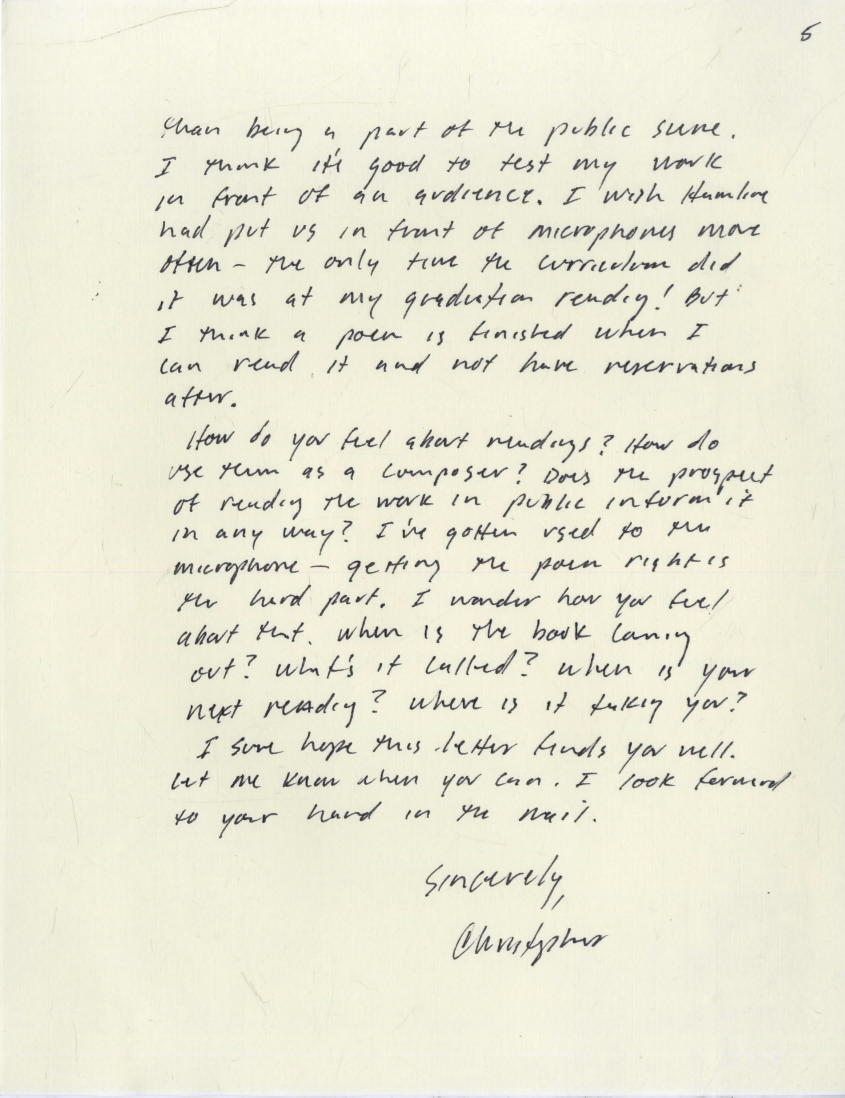 5
than being a part of the public scene.
I think it's good to test my work
in front of an audience. I wish Hamline
had put us in front of microphones more
often – the only time the curriculum did
it was at my graduation reading! But
I think a poem is finished when I
can read it and not have reservations
after.
How do you feel about readings? How do
use them as a composer? Does the prospect
of reading the work in public inform it
in any way? I've gotten used to the
microphone – getting the poem right is
the hard part. I wonder how you feel
about that. When is the book coming
out? What's it called? When is your
next reading? Where is it taking you?
I sure hope this letter finds you well.
Let me know when you can. I look forward
to your hand in the mail.
Sincerely,
Christopher